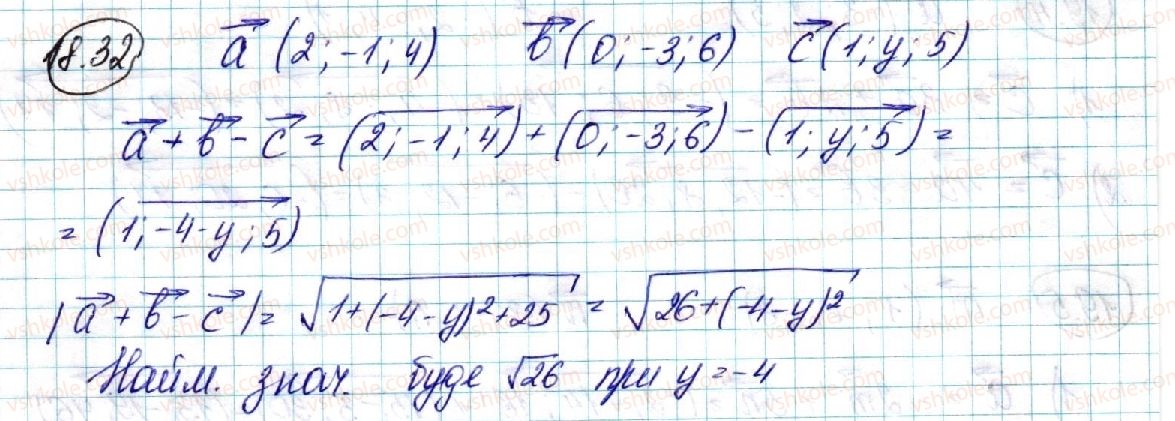 18.32 a⃗ (2; -1; 4) b⃗ (0; -3; 6) c⃗ (1; y; 5)
a⃗ + b⃗ - c⃗ = (2; -1; 4) + (0; -3; 6) - (1; y; 5) =
= (1; -4 - y; 5)
|a⃗ + b⃗ - c⃗| = √(1 + (-4 - y)² + 25) = √(26 + (-4 - y)²)
Найм. знач. буде √26 при y = -4